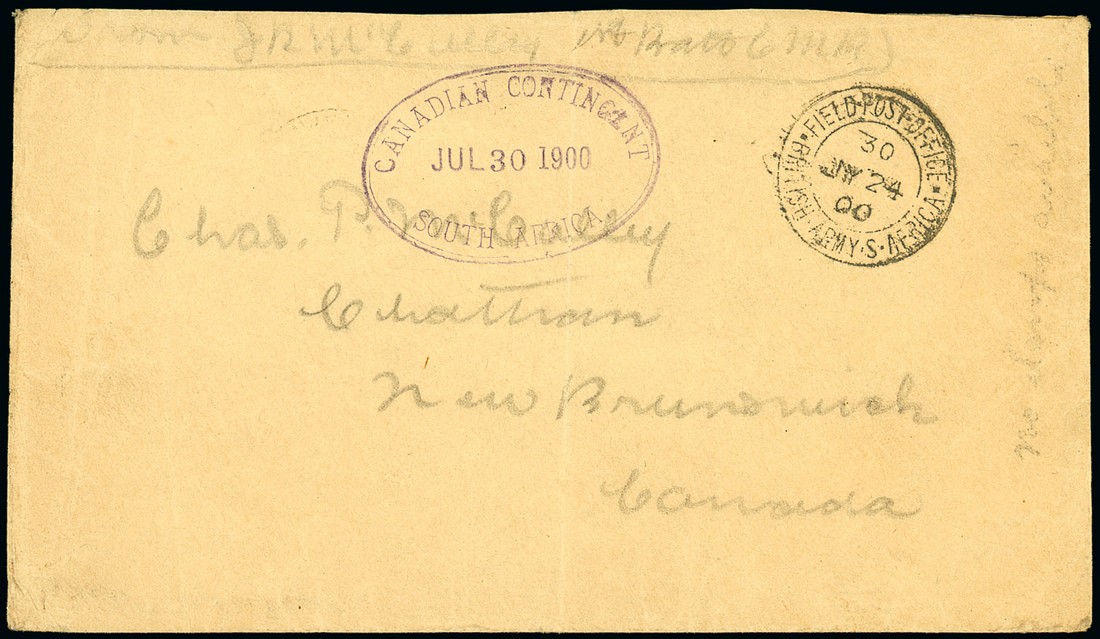 From J R McCulley 1st Batt C M R
CANADIAN CONTINGENT
JUL 30 1900
SOUTH AFRICA
FIELD·POST·OFFICE
30
24
00
BRITISH·ARMY·S·AFRICA
Chas. P. McCulley
Chatham
New Brunswick
Canada
No stamps available